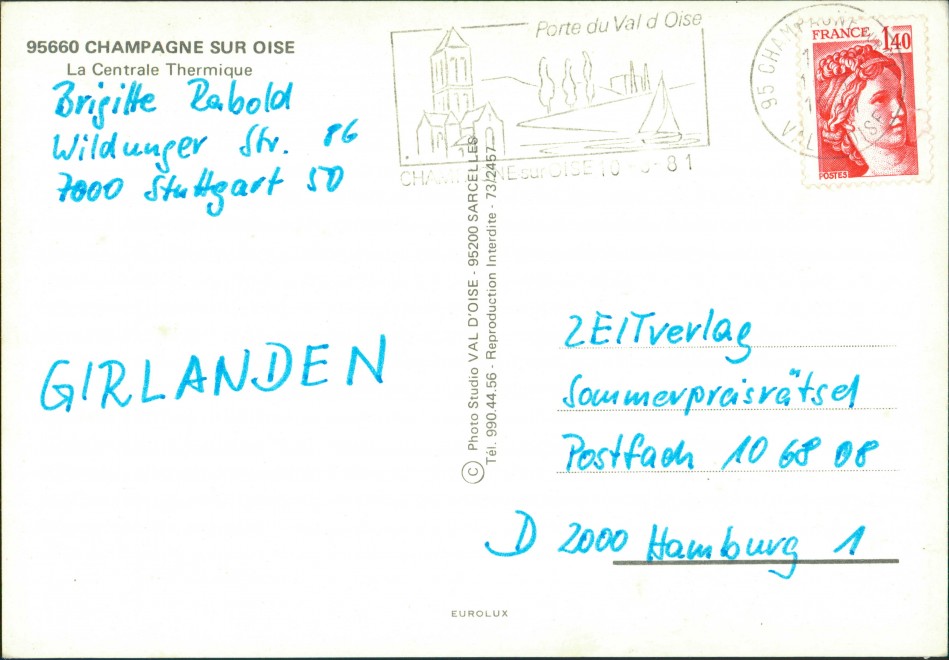 95660 CHAMPAGNE SUR OISE
La Centrale Thermique
Brigitte Rabold
Wildunger Str. 86
7000 Stuttgart 50
GIRLANDEN
Porte du Val d Oise
sur OISE
81
95 CHAMPAGNE
VAL OISE
FRANCE 1,40
POSTES
© Photo Studio VAL D'OISE - 95200 SARCELLES
Tél. 990.44.56 - Reproduction Interdite - 73/2457
ZEITverlag
Sommerpreisrätsel
Postfach 10 68 08
D 2000 Hamburg 1
EUROLUX